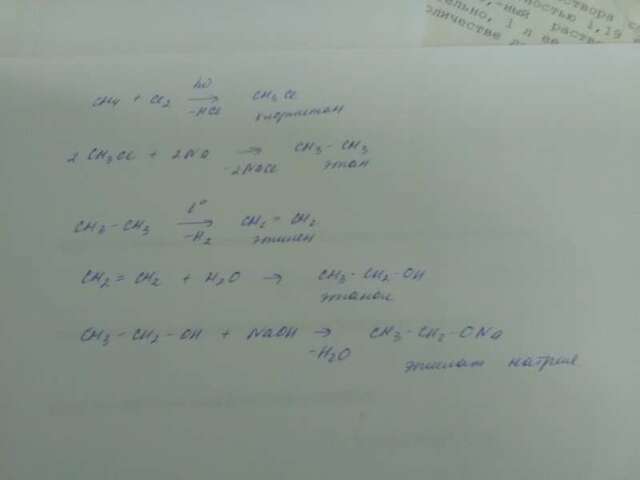 створа со
ностью 1,19
ный раство
тельно, 1 л ее
количестве
CH4 + Cl2 hν → -HCl CH3Cl
хлорметан
2CH3Cl + 2Na → -2NaCl CH3-CH3
этан
CH3-CH3 t° → -H2 CH2=CH2
этилен
CH2=CH2 + H2O → CH3-CH2-OH
этанол
CH3-CH2-OH + NaOH → -H2O CH3-CH2-ONa
этилат натрия